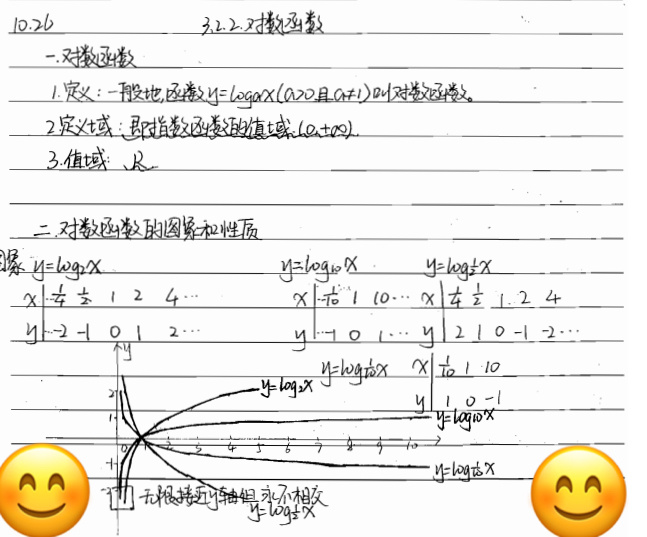 10.26 3.2.2.对数函数
一.对数函数
1.定义:一般地,函数y=logax(a>0且a≠1)叫对数函数。
2.定义域:即指数函数的值域.(0,+∞).
3.值域 R
二.对数函数的图象和性质
图象 y=log₂x y=log₁₀x y=log½x
x 1/4 1/2 1 2 4… x 1/10 1 10… x 1/4 1/2 1 2 4
y -2 -1 0 1 2… y -1 0 1… y 2 1 0 -1 -2…
y=log1/10x x 1/10 1 10
y 1 0 -1
y
y=log₂x
y=log₁₀x
2
1
0 1 2 3 4 5 6 7 8 9 10 x
-1
y=log1/10x
-2
无限接近y轴但永不相交
y=log½x